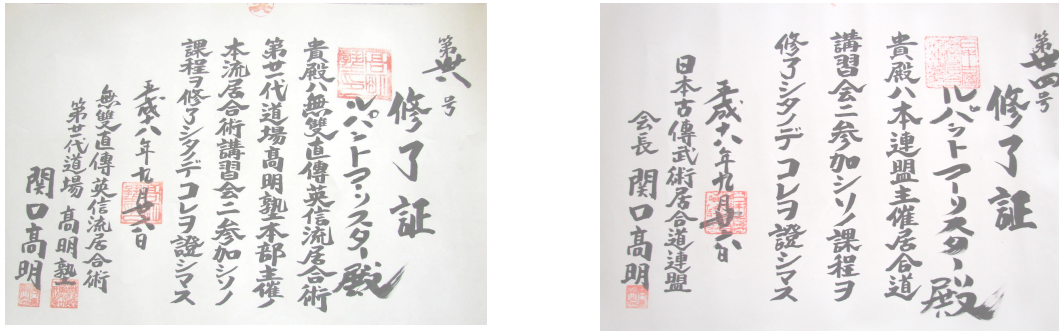 第廿八号
修了証
ルパントマンスター殿
貴殿ハ無雙直傳英信流居合術
第廿一代道場髙明塾本部主催ノ
本流居合術講習会ニ参加シソノ
課程ヲ修了シタノデコレヲ證シマス
平成八年九月廿六日
無雙直傳英信流居合術
第廿一代道場 髙明塾
関口髙明
第廿四号
修了証
ルパットマーリスター殿
貴殿ハ本連盟主催居合道
講習会ニ参加シソノ課程ヲ
修了シタノデコレヲ證シマス
平成十八年九月廿六日
日本古傳武術居合道連盟
会長 関口髙明